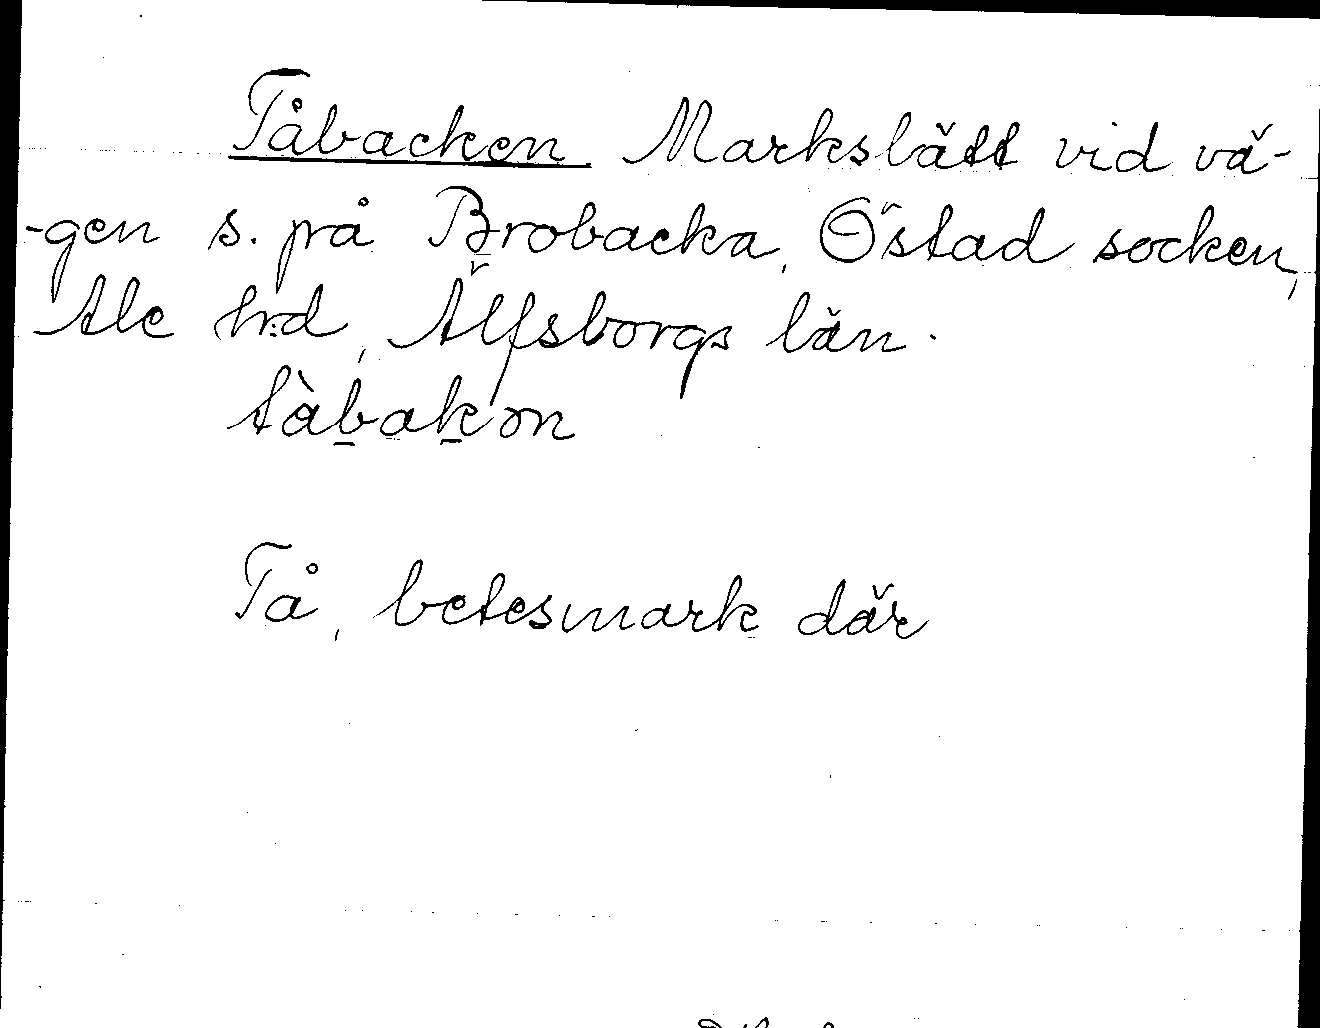 Tåbacken Markslätt vid vä-
-gen s. på Brobacka, Östad socken,
Ale h:d, Älfsborgs län.
tàbakon
Tå, betesmark där